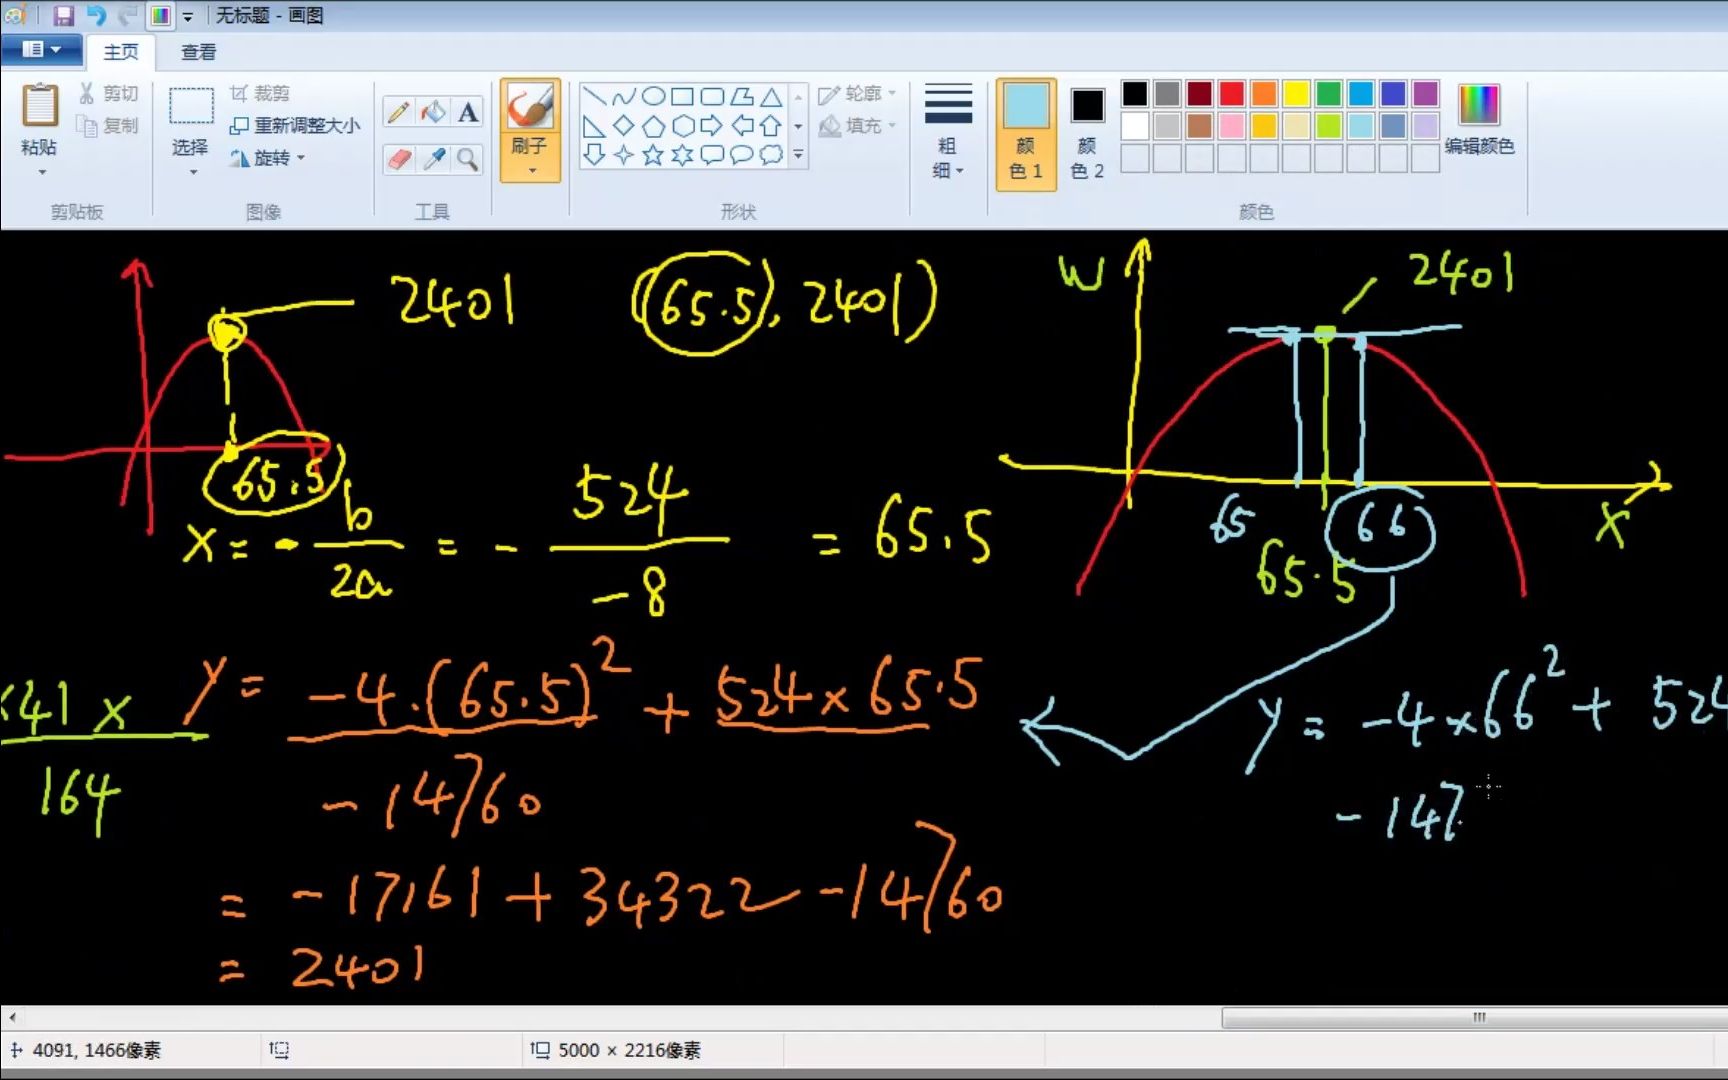 无标题 - 画图
主页 查看
粘贴 剪切 复制
剪贴板
选择 裁剪 重新调整大小 旋转
图像
A
工具
刷子
轮廓 填充
形状
粗细
颜色 1 颜色 2 编辑颜色
颜色
2401 (65.5), 2401)
65.5
x = - b/2a = - 524/-8 = 65.5
W 2401
65 65.5 66 X
41 x
164
y = -4·(65.5)² + 524×65.5
-14760
= -17161 + 34322 -14760
= 2401
y = -4×66² + 524
-147
4091, 1466像素 5000 × 2216像素